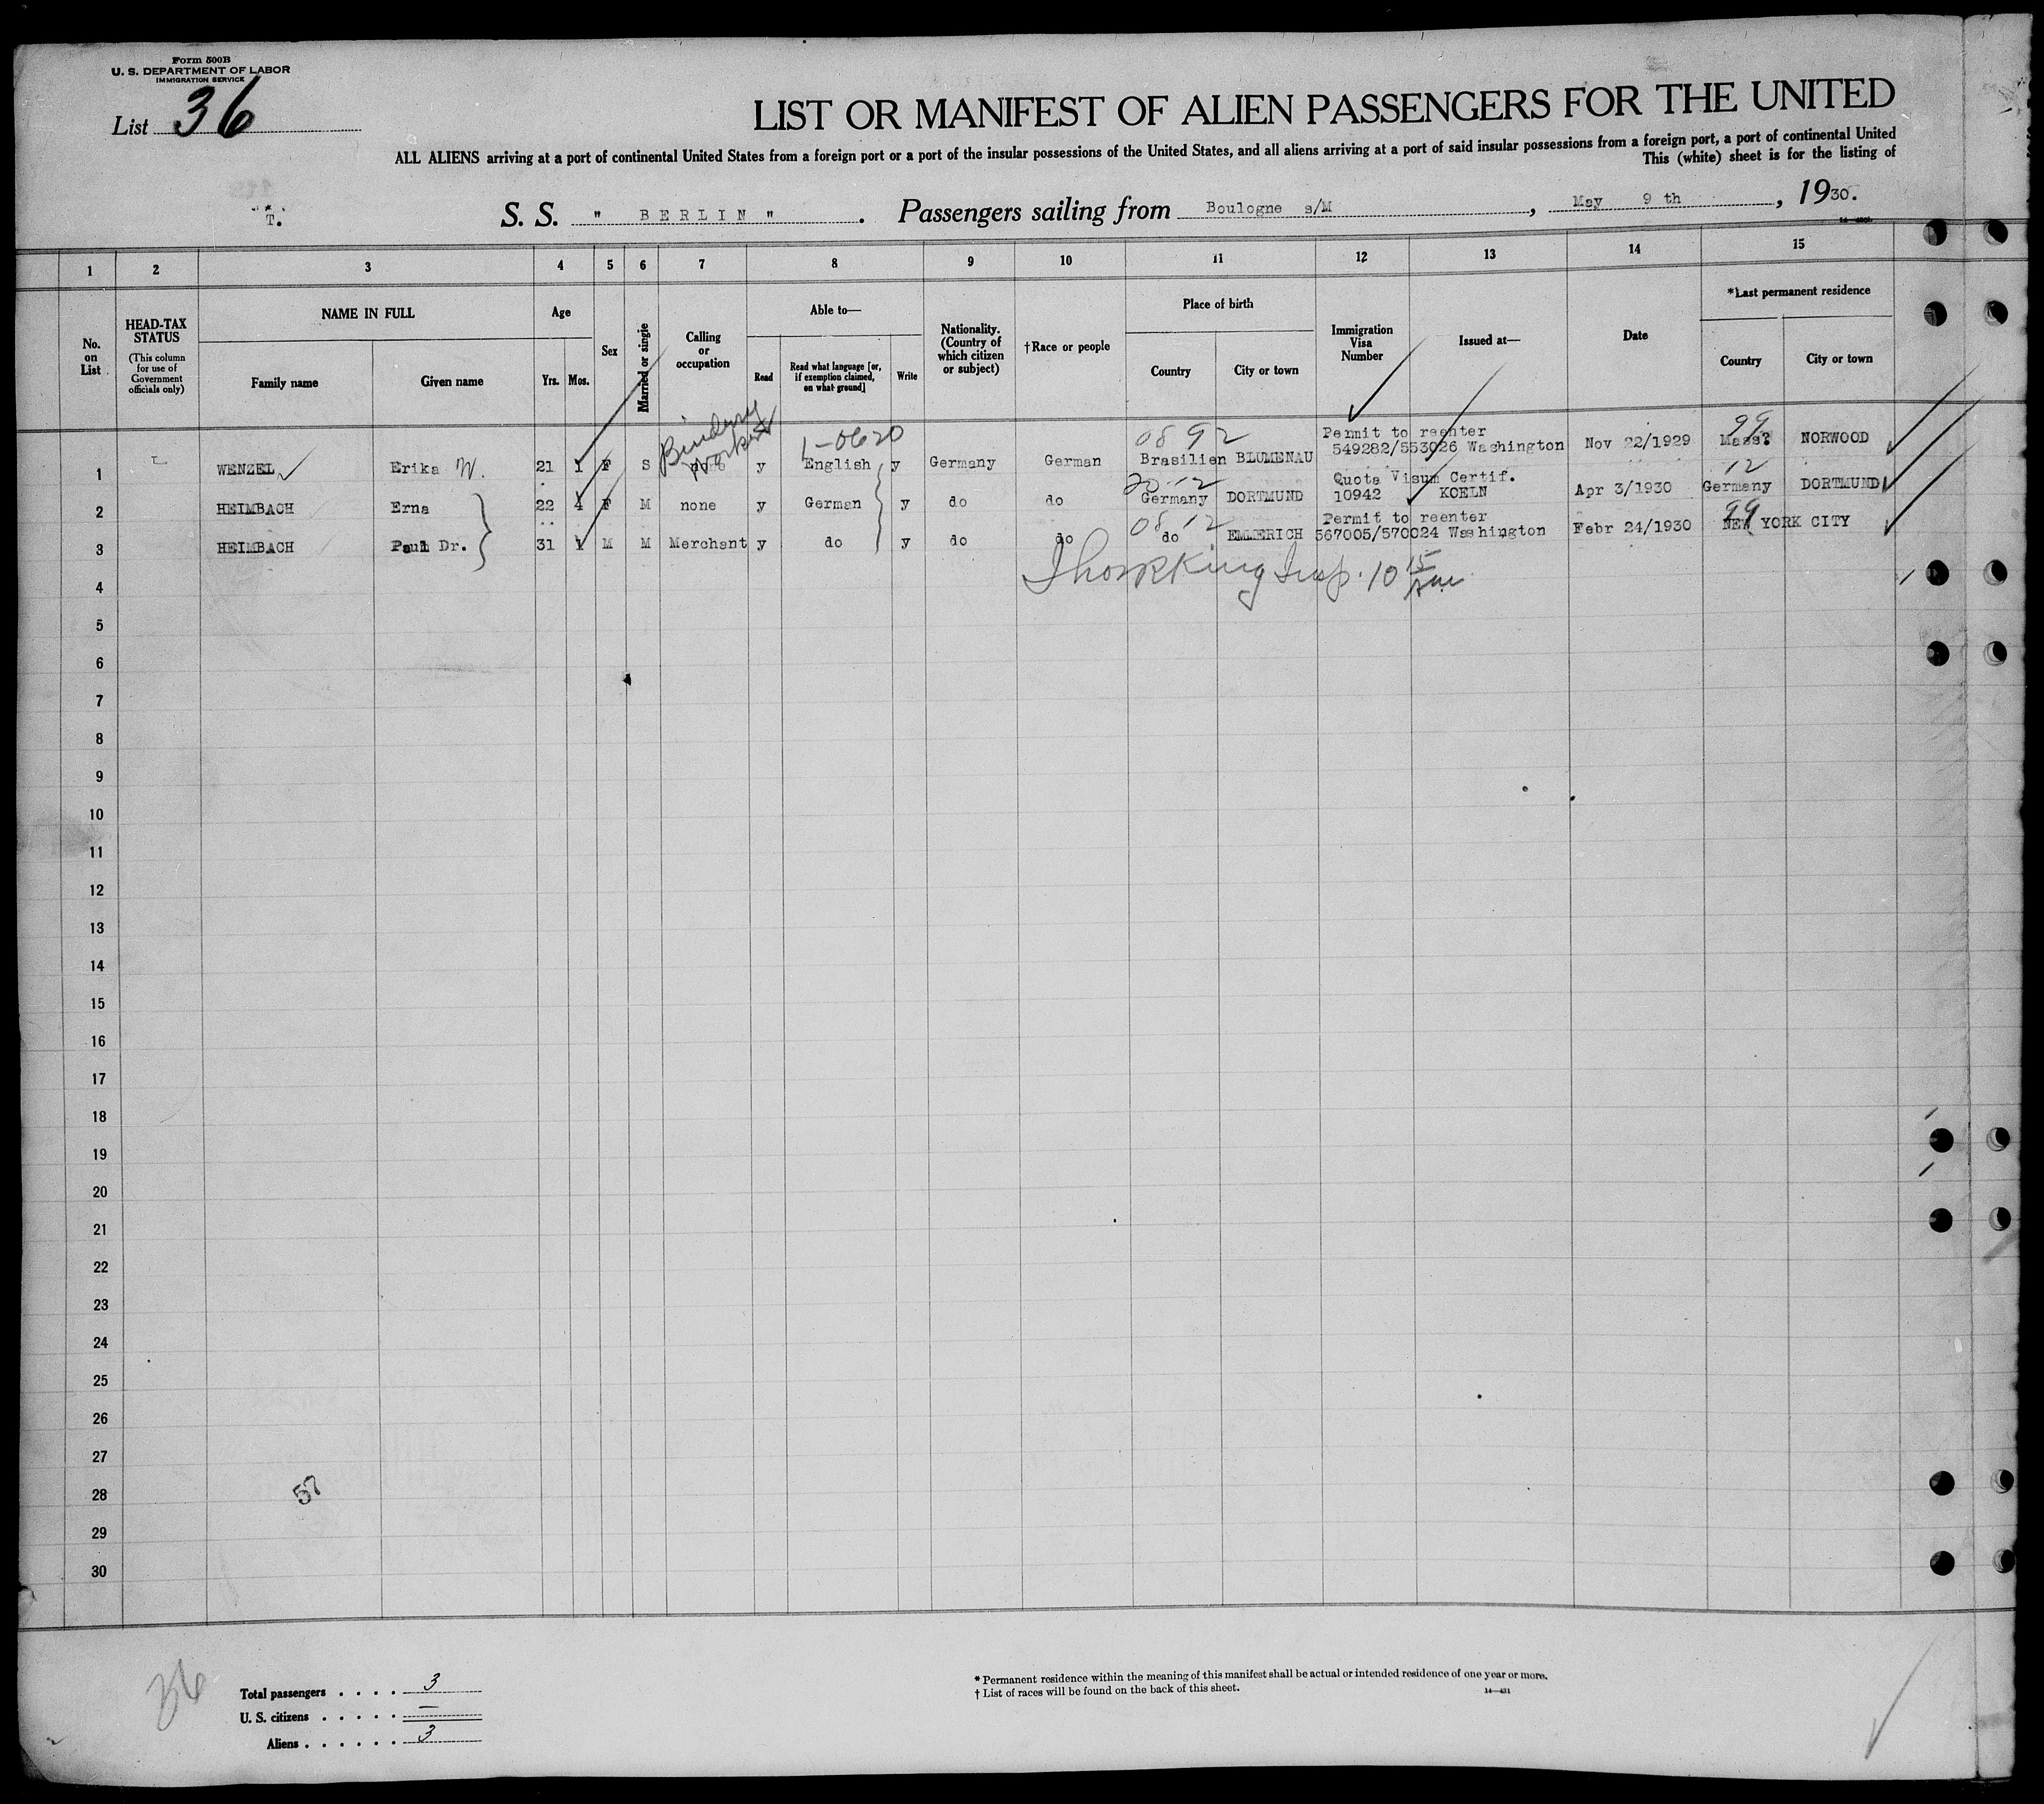 Form 500B
U. S. DEPARTMENT OF LABOR
IMMIGRATION SERVICE
List 36
LIST OR MANIFEST OF ALIEN PASSENGERS FOR THE UNITED
ALL ALIENS arriving at a port of continental United States from a foreign port or a port of the insular possessions of the United States, and all aliens arriving at a port of said insular possessions from a foreign port, a port of continental United
This (white) sheet is for the listing of
T.
S. S. " BERLIN " . Passengers sailing from Boulogne s/M , May 9 th , 1930.
1 2 3 4 5 6 7 8 9 10 11 12 13 14 15
No. on List
HEAD-TAX STATUS
(This column for use of Government officials only)
NAME IN FULL
Family name
Given name
Age
Yrs. Mos.
Sex
Married or single
Calling or occupation
Able to—
Read
Read what language [or, if exemption claimed, on what ground]
Write
Nationality. (Country of which citizen or subject)
†Race or people
Place of birth
Country
City or town
Immigration Visa Number
Issued at—
Date
*Last permanent residence
Country
City or town
Bindery worker 1-0620 08 92 99
1 WENZEL Erika W. 21 1 F S y English y Germany German Brasilien BLUMENAU Permit to reenter 549282/553026 Washington Nov 22/1929 Mass? NORWOOD
20-12 12
2 HEIMBACH Erna 22 4 F M none y German y do do Germany DORTMUND Quota Visum Certif. 10942 KOELN Apr 3/1930 Germany DORTMUND
08 12 99
3 HEIMBACH Paul Dr. 31 1 M M Merchant y do y do do do EMMERICH Permit to reenter 567005/570024 Washington Febr 24/1930 NEW YORK CITY
King Insp. 10 15 am
4
5
6
7
8
9
10
11
12
13
14
15
16
17
18
19
20
21
22
23
24
25
26
27
28
57
29
30
36
Total passengers . . . . 3
U. S. citizens . . . . . —
Aliens . . . . . . 3
* Permanent residence within the meaning of this manifest shall be actual or intended residence of one year or more.
† List of races will be found on the back of this sheet.